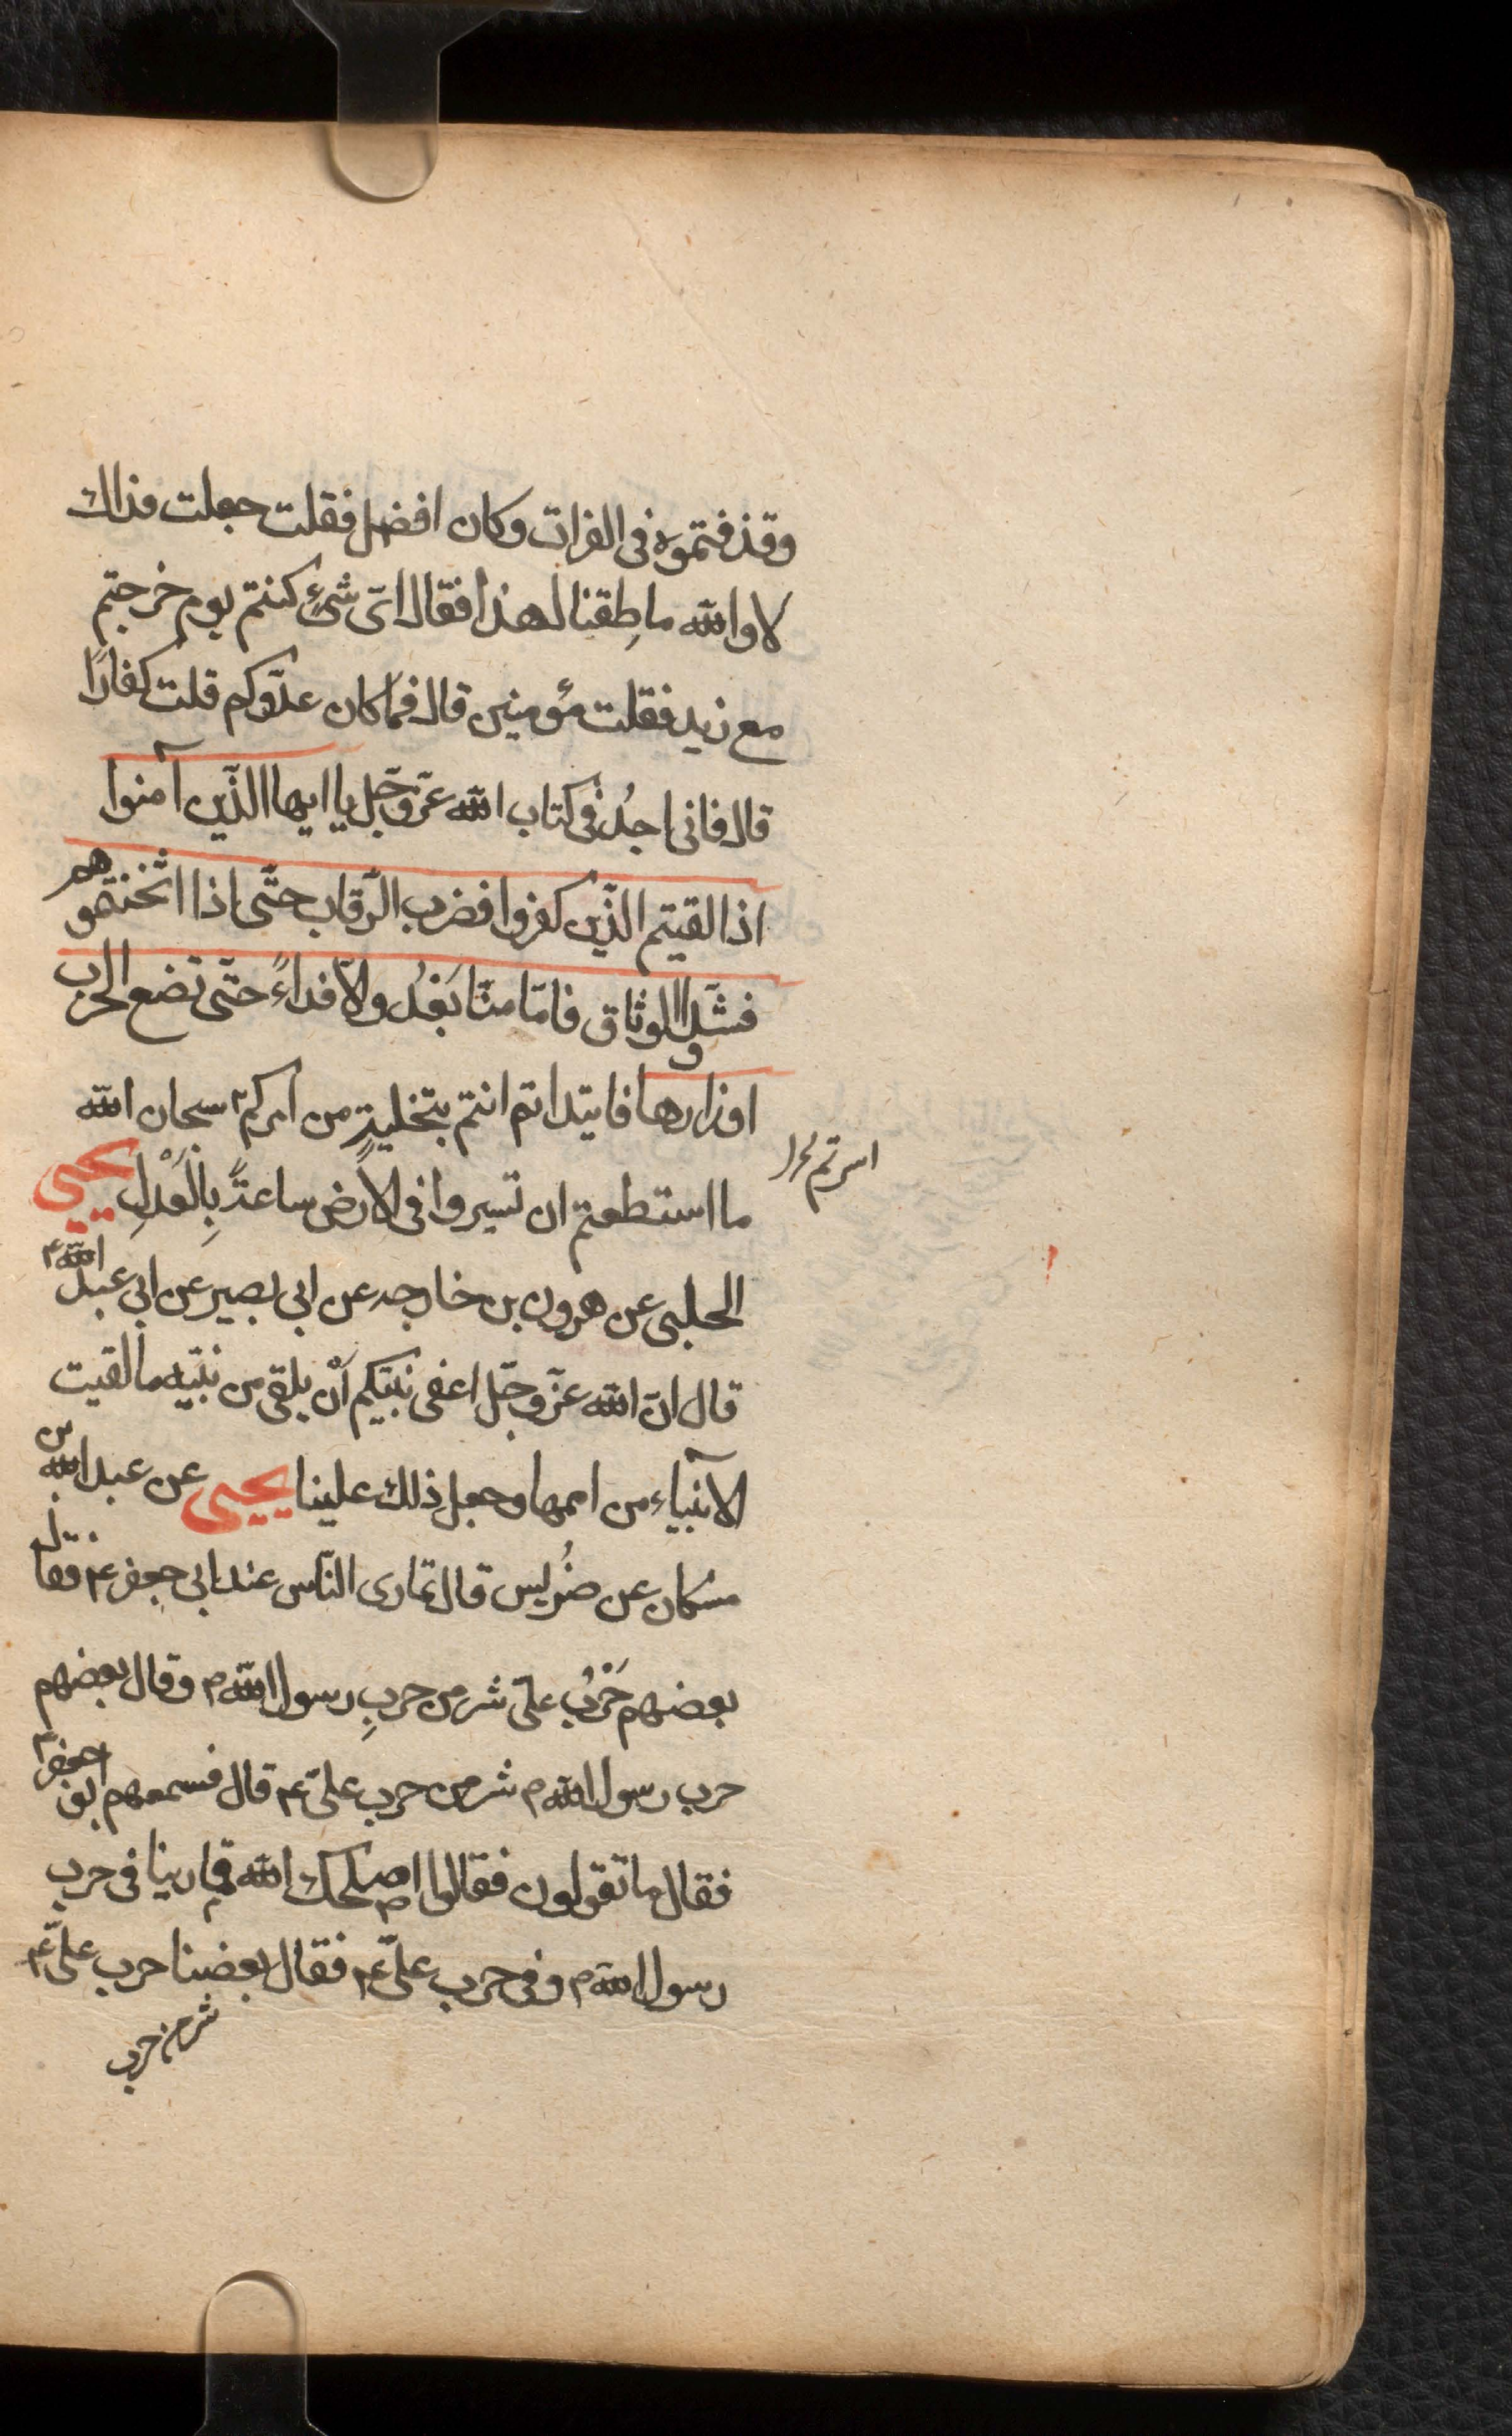 وقذفتموه فى الفرات وكان افضل فقلت جعلت فداك
لا والله ما طِقنا لهذا فقال اىّ شئ كنتم يوم خرجتم
مع زيد فقلت مؤمنين قال فما كان عدوّكم قلت كفارًا
قال فانى اجدُ فى كتاب الله عزّ وجّل يا ايها الذّين آمنوا
اذا لقيتم الذّين كفروا فضرب الرّقاب حتّى اذا اثخنتموهم
فشدّوا الوثاق فامّا منّا بَعْدُ والاّ فداءً حتّى تضع الحرب
اوزارها فابتداتم انتم بتخلية من اسرتم سبحان الله
ما استطعتم ان تسيروا فى الارض ساعةً بِالْعَدْلِ يحيى
الحلبى عن هرون بن خارجه عن ابى بصير عن ابى عبد الله ع
قال انّ الله عزّ وجّل اعفى نبيّكم اَنْ يلقى من نبيّه ما لقيت
الآنبياء من اممها وجعل ذلك علينا يحيى عن عبد الله بن
مسكان عن ضُريس قال تمارى النّاس عند ابى جعفر ع فقال
بعضهم حَرْبُ علىّ شر من حربِ رسول الله ص وقال بعضهم
حرب رسول الله ص شر من حرب علىّ ع قال فسمعهم ابو جعفر ع
فقال ما تقولون فقالوا اصلحك الله تمارينا فى حرب
رسول الله ص وفى حرب علىّ ع فقال بعضنا حرب علىّ ع
شر من حرب
اسرتم